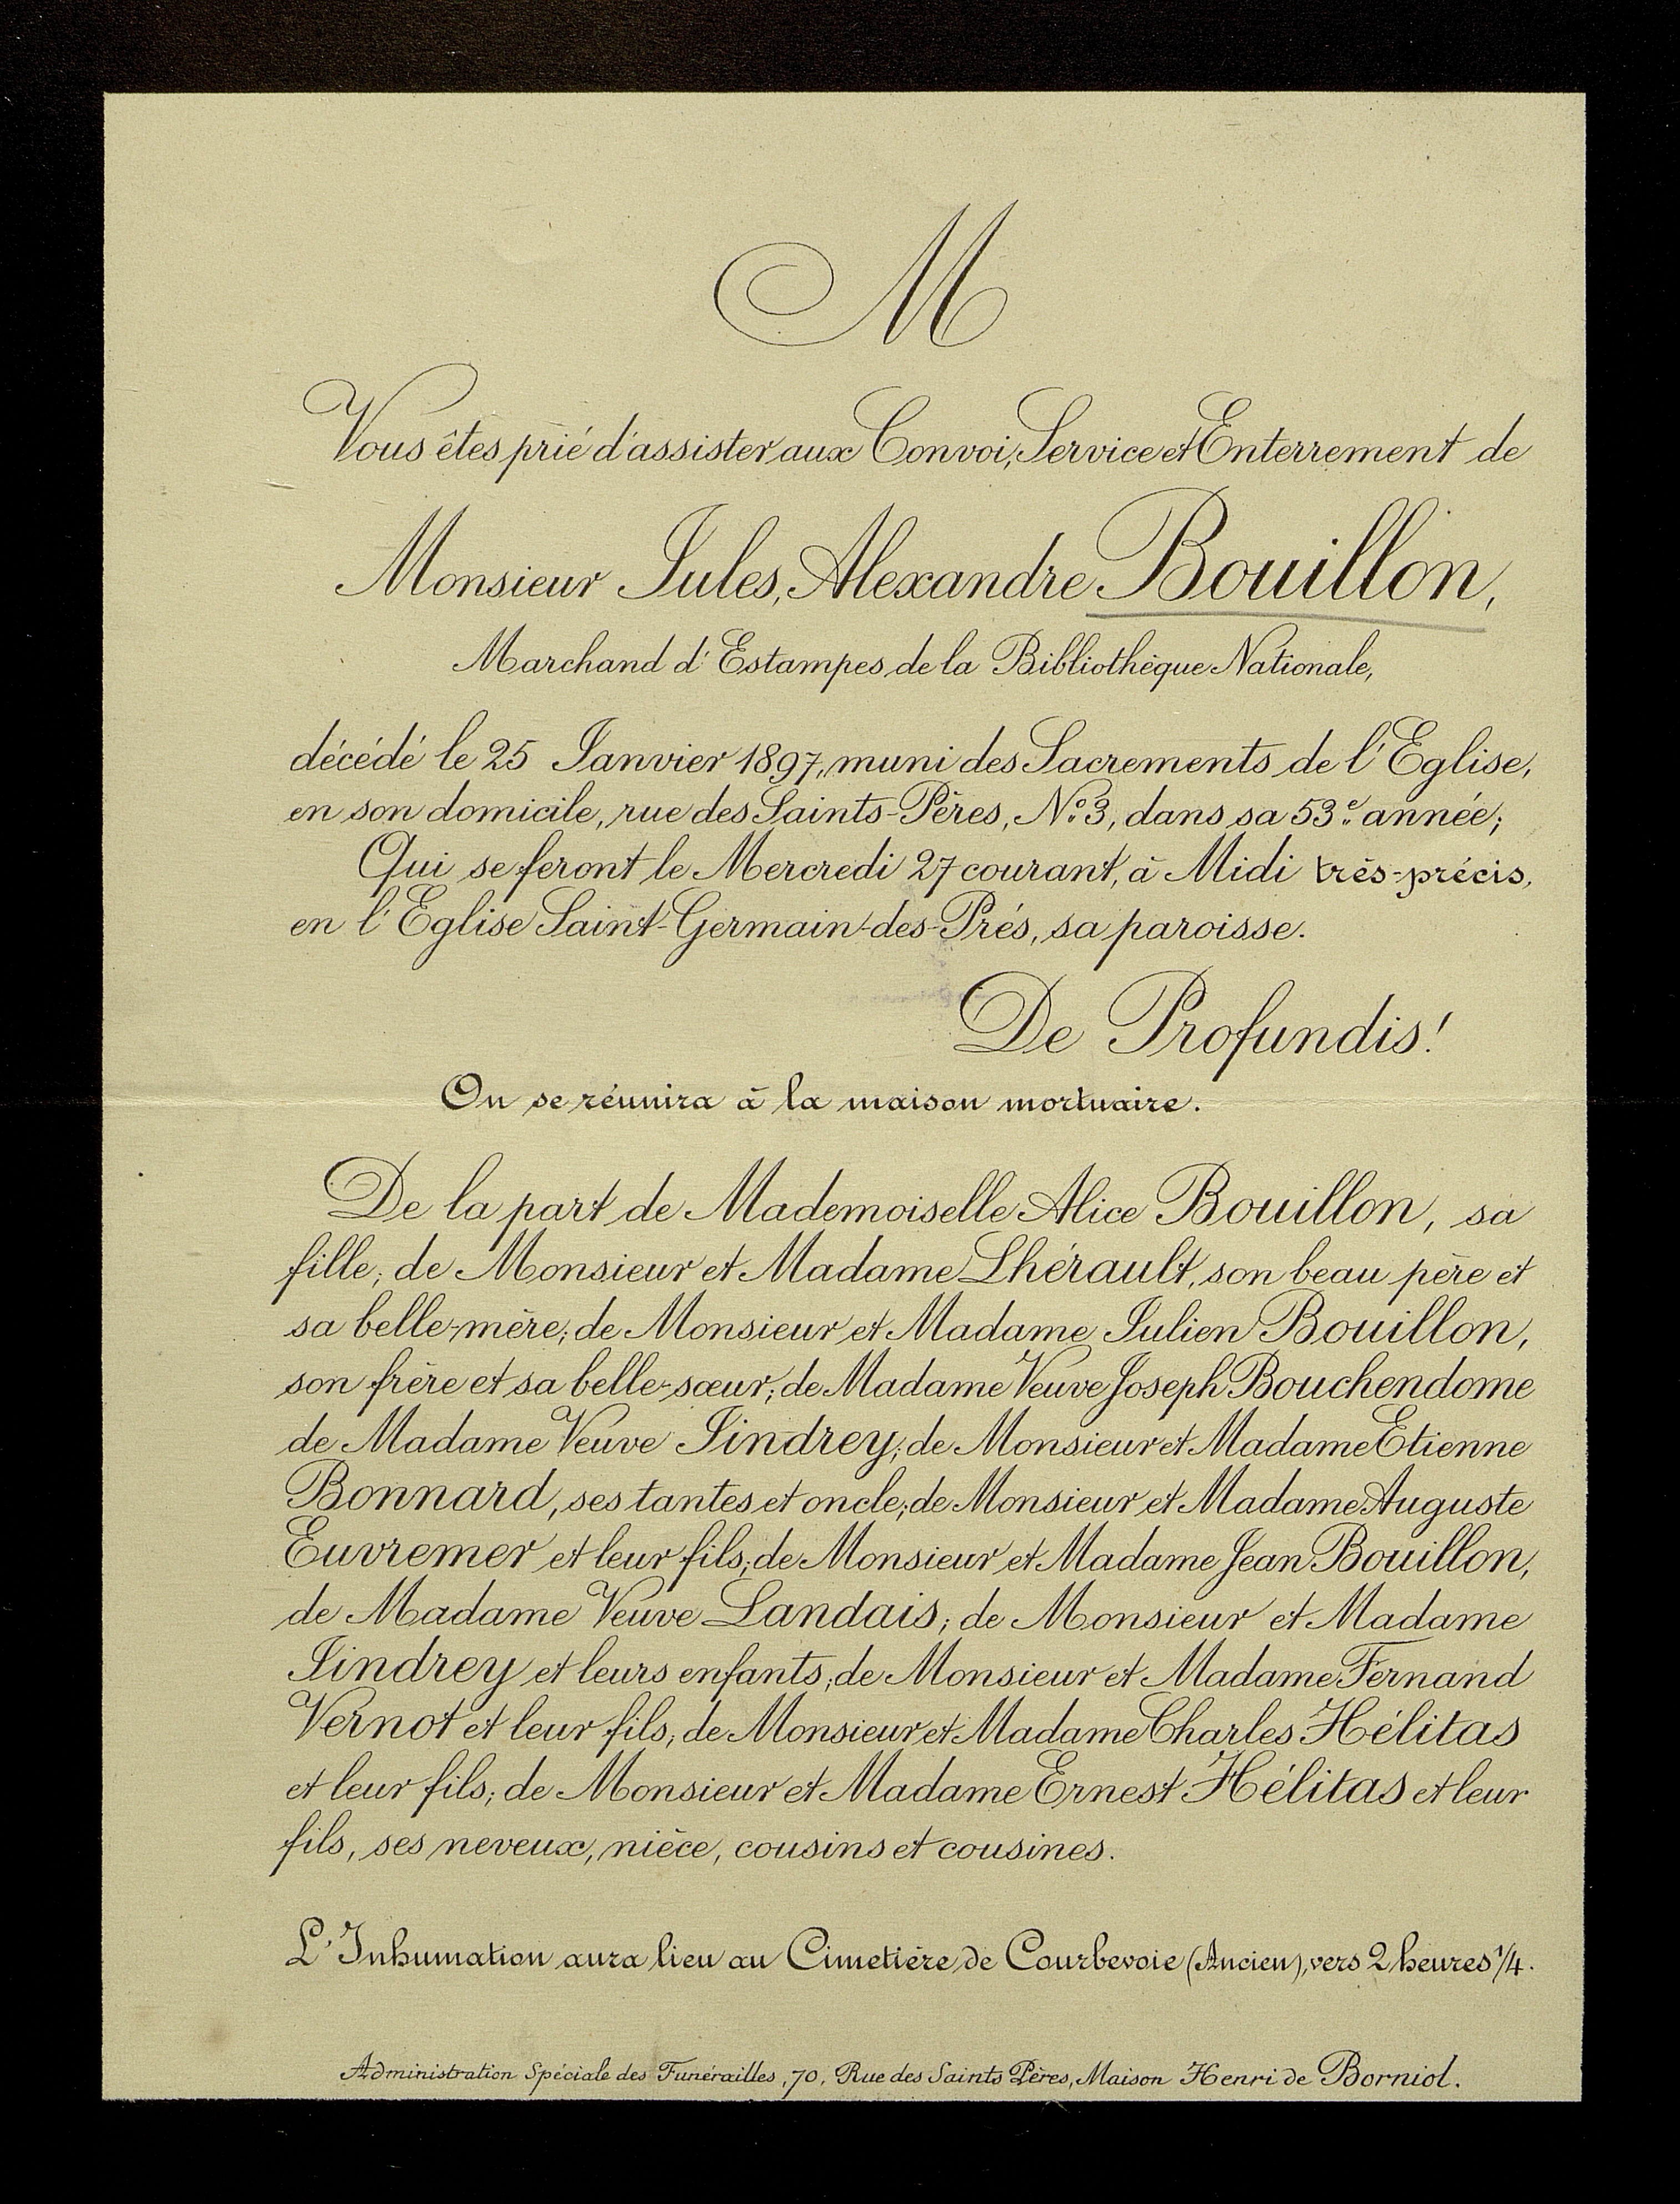 M
Vous êtes prié d'assister aux Convoi, Service et Enterrement de
Monsieur Jules, Alexandre Bouillon,
Marchand d'Estampes de la Bibliothèque Nationale,
décédé le 25 Janvier 1897, muni des Sacrements de l'Eglise,
en son domicile, rue des Saints-Pères, No. 3, dans sa 53e. année;
Qui se feront le Mercredi 27 courant, à Midi très-précis,
en l'Eglise Saint-Germain-des-Prés, sa paroisse.
De Profundis!
On se réunira à la maison mortuaire.
De la part de Mademoiselle Alice Bouillon, sa
fille; de Monsieur et Madame Lhérault, son beau père et
sa belle-mère; de Monsieur et Madame Julien Bouillon,
son frère et sa belle-sœur; de Madame Veuve Joseph Bouchendome
de Madame Veuve Jindrey; de Monsieur et Madame Etienne
Bonnard, ses tantes et oncle; de Monsieur et Madame Auguste
Euvremer et leur fils; de Monsieur et Madame Jean Bouillon,
de Madame Veuve Landais; de Monsieur et Madame
Jindrey et leurs enfants; de Monsieur et Madame Fernand
Vernot et leur fils; de Monsieur et Madame Charles Hélitas
et leur fils; de Monsieur et Madame Ernest Hélitas et leur
fils, ses neveux, nièce, cousins et cousines.
L'Inhumation aura lieu au Cimetière de Courbevoie (Ancien), vers 2 heures 1/4.
Administration Spéciale des Funérailles, 70, Rue des Saints Pères, Maison Henri de Borniol.